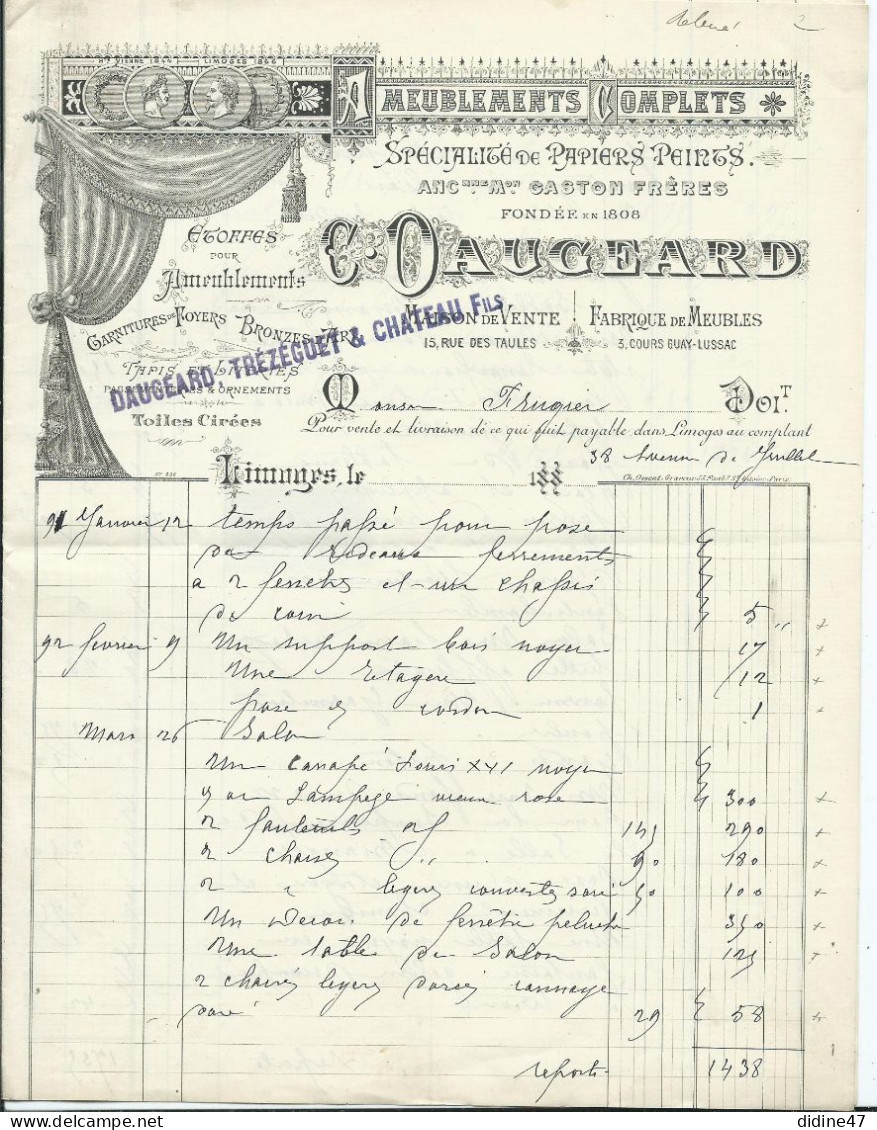 2
Hte VIENNE 1844 LIMOGES 1866
AMEUBLEMENTS COMPLETS
SPÉCIALITÉ DE PAPIERS PEINTS.
ANCNNE MON GASTON FRÈRES
FONDÉE EN 1808
C. DAUGEARD
ETOFFES
POUR
Ameublements
GARNITURES DE FOYERS BRONZES D'ART
TAPIS EN LISIÈRES
PASSEMENTERIES & ORNEMENTS
Toiles Cirées
DAUGEARD, TRÉZÉGUET & CHATEAU FILS
MAISON DE VENTE
15, RUE DES TAULES
FABRIQUE DE MEUBLES
3, COURS GUAY-LUSSAC
Monsor Frugier DOIT.
Pour vente et livraison de ce qui suit payable dans Limoges au comptant
38 Avenue de
Limoges, le 188
91 Janvier 12 temps passé pour pose
de rideaux ferrements
a 2 fenêtres et un chassis
de coin 5 "
92 février 9 Un support bois noyer 17
Une Etagère 12
pose cordon 1
Mars 26 Salon
Un Canapé Louis XVI noyer
vieux rose 300
2 fauteuils 145 290
2 chaises " 90 180
2 " legeres couvertes soie 50 100
Un Decor de fenêtre peluche 350
Une table de Salon 125
2 chaises legeres dorées cannage
doré 29 58
report 1438
didine47